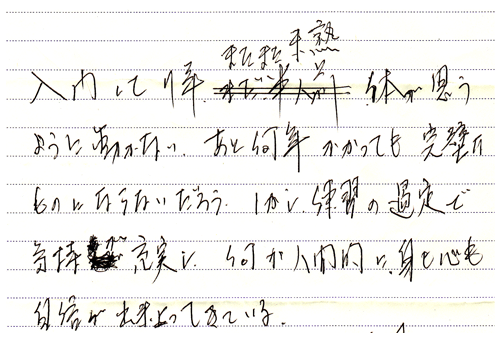 まだまだ未熟
入門して1年. まだ半人前 体が思う
ように動かない あと何年かかっても完璧な
ものにならないだろう. しかし練習の過定で
気持 充実し 何か人間的に身も心も
自信が出来上ってきている.